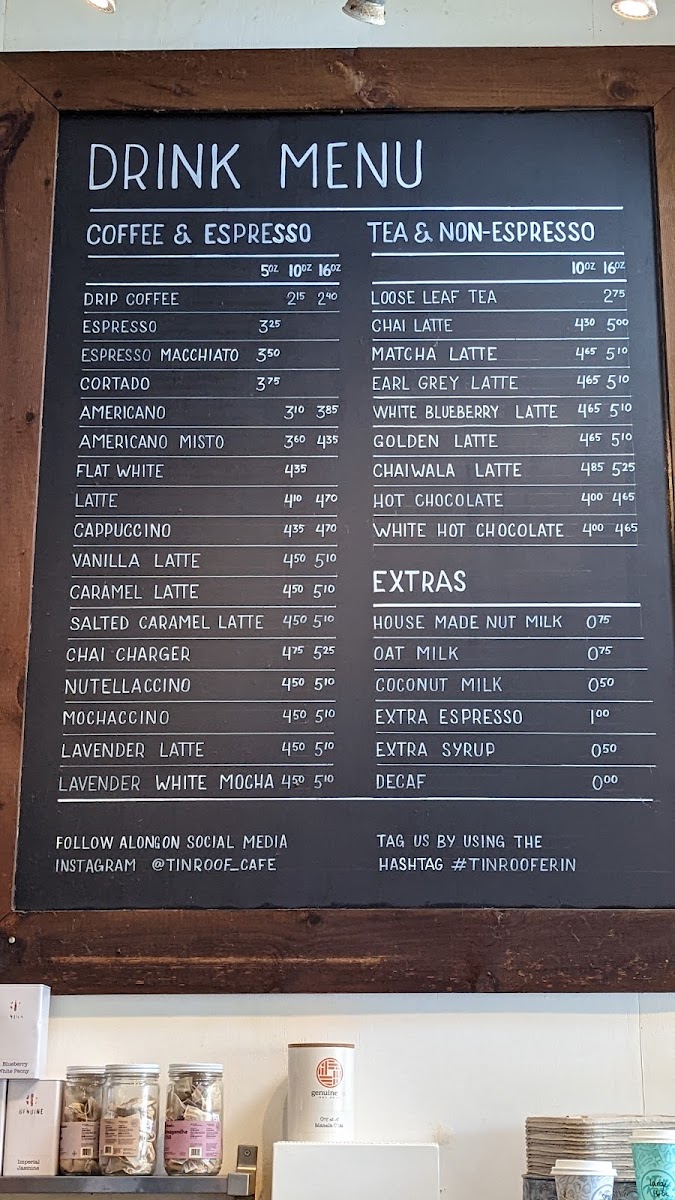 DRINK MENU
COFFEE & ESPRESSO
5OZ 10OZ 16OZ
DRIP COFFEE 215 240
ESPRESSO 325
ESPRESSO MACCHIATO 350
CORTADO 375
AMERICANO 310 385
AMERICANO MISTO 360 435
FLAT WHITE 435
LATTE 410 470
CAPPUCCINO 435 470
VANILLA LATTE 450 510
CARAMEL LATTE 450 510
SALTED CARAMEL LATTE 450 510
CHAI CHARGER 475 525
NUTELLACCINO 450 510
MOCHACCINO 450 510
LAVENDER LATTE 450 510
LAVENDER WHITE MOCHA 450 510
FOLLOW ALONGON SOCIAL MEDIA
INSTAGRAM @TINROOF_CAFE
TEA & NON-ESPRESSO
10OZ 16OZ
LOOSE LEAF TEA 275
CHAI LATTE 430 500
MATCHA LATTE 465 510
EARL GREY LATTE 465 510
WHITE BLUEBERRY LATTE 465 510
GOLDEN LATTE 465 510
CHAIWALA LATTE 485 525
HOT CHOCOLATE 400 465
WHITE HOT CHOCOLATE 400 465
EXTRAS
HOUSE MADE NUT MILK 075
OAT MILK 075
COCONUT MILK 050
EXTRA ESPRESSO 100
EXTRA SYRUP 050
DECAF 000
TAG US BY USING THE
HASHTAG #TINROOFERIN
Blueberry
White Peony
GENUINE
Imperial
Jasmine
genuine